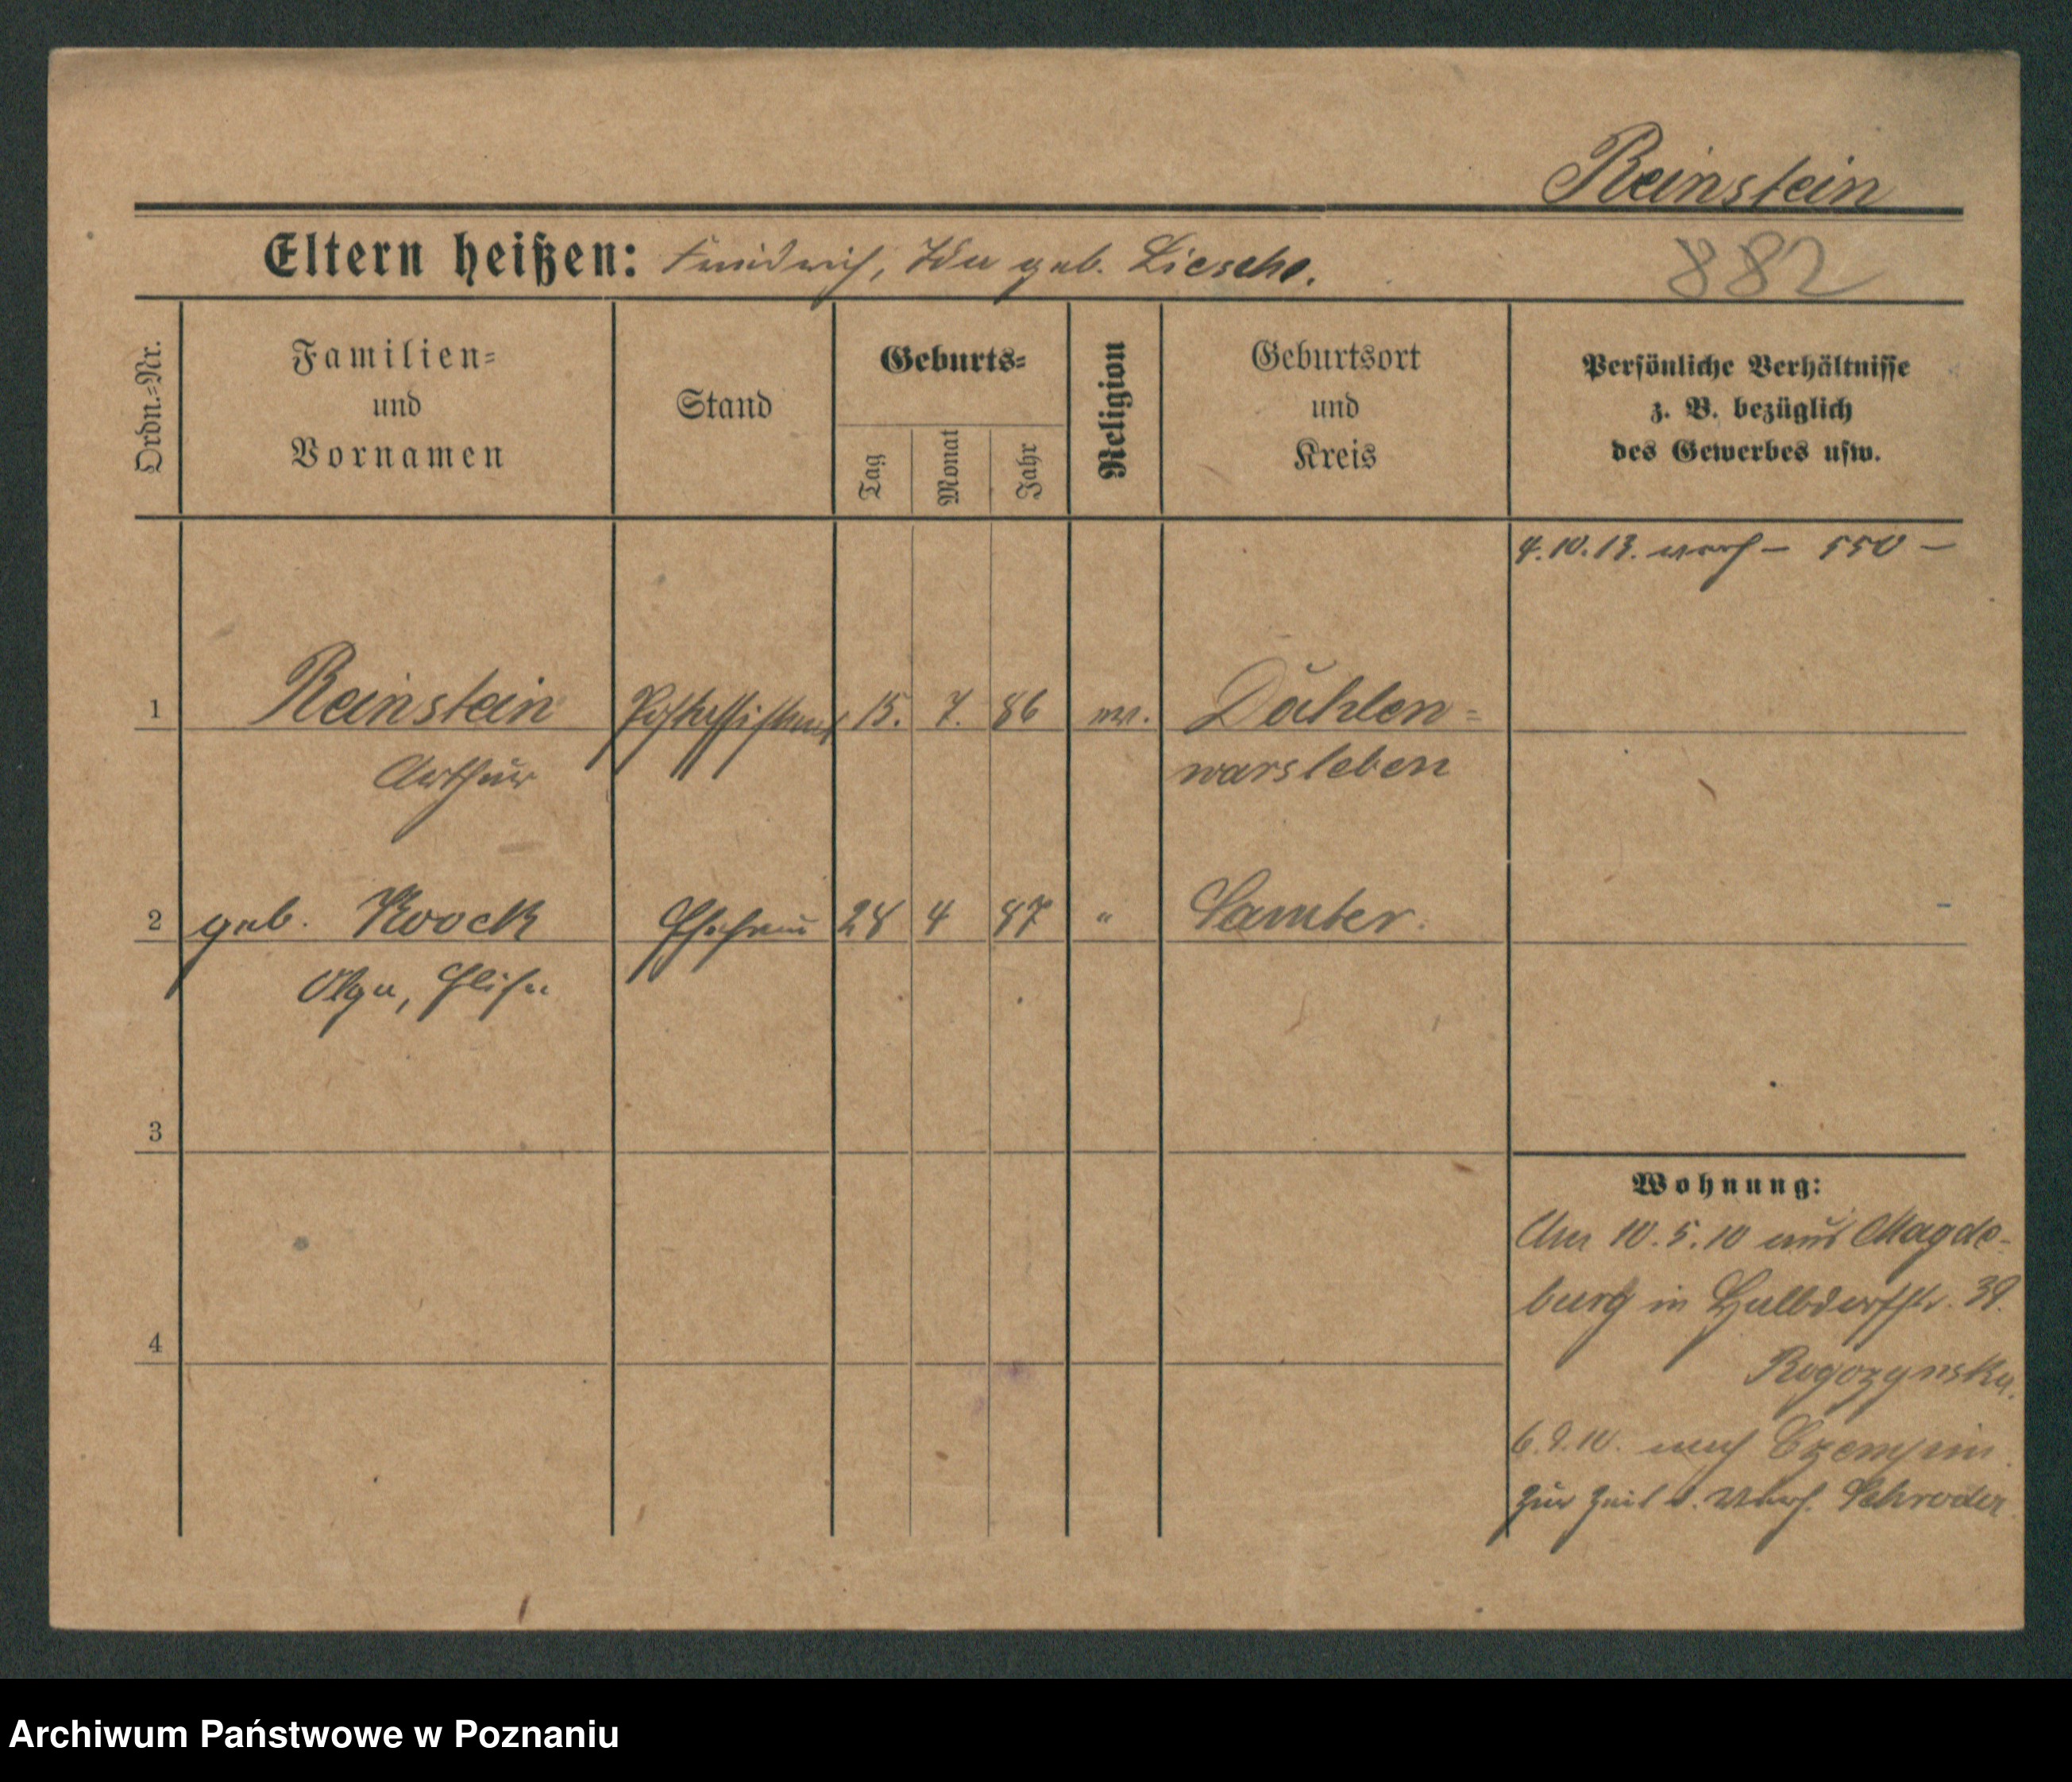 Reinstein
Eltern heißen: Friedrich, Ida geb. Liesche.
882
Ordn.-Nr.
Familien-
und
Vornamen
Stand
Geburts-
Tag
Monat
Jahr
Religion
Geburtsort
und
Kreis
Persönliche Verhältnisse
z. B. bezüglich
des Gewerbes usw.
4.10.13. – 550 –
1 Reinstein Postassistent 15. 7. 86 ev. Dahlen-
Arthur warsleben
2 geb. Koock Ehefrau 28 4 87 " Samter.
Olga, Elise
3
4
Wohnung:
10.5.10 aus Magde-
burg in Halbdorfstr. 39.
Rogozynska.
6.9.10. nach Czempin
zur Zeit b. Schroder
Archiwum Państwowe w Poznaniu